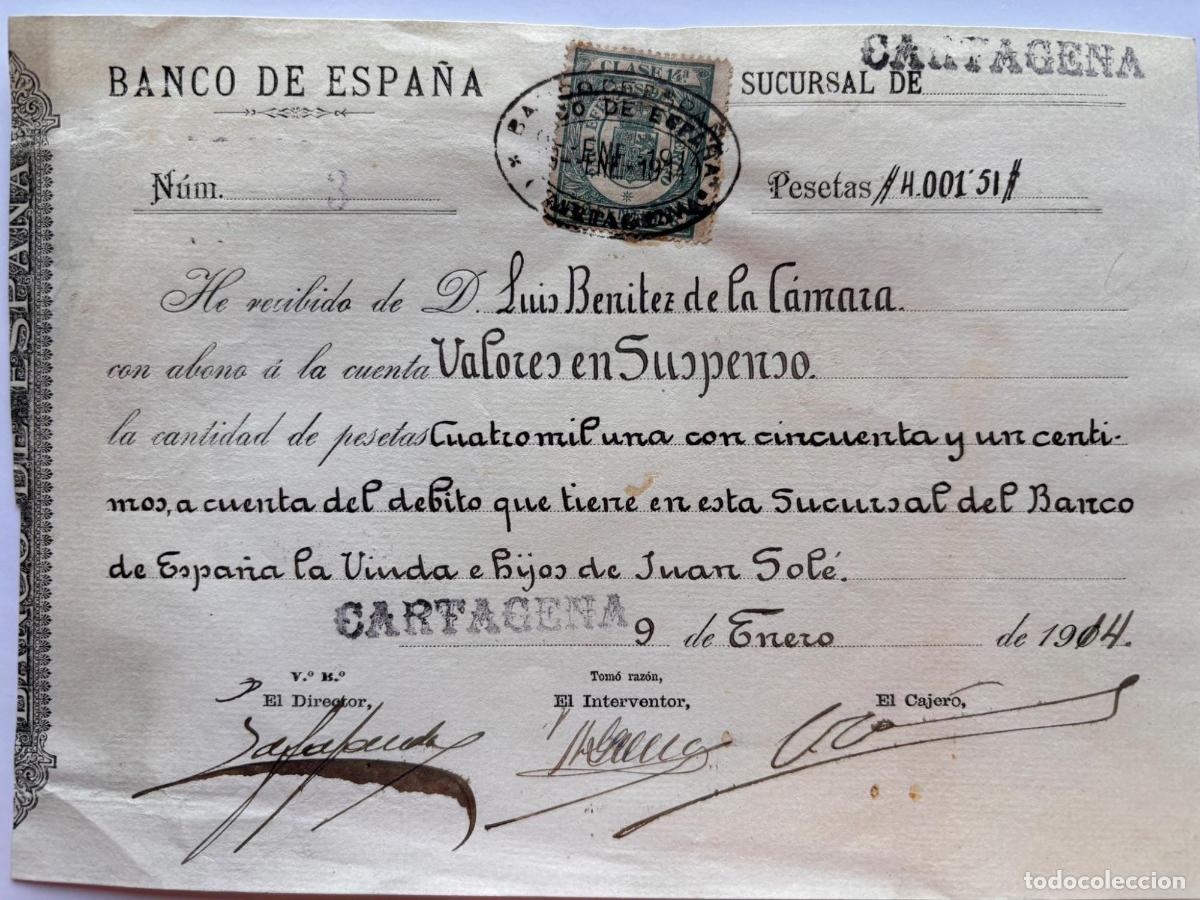 BANCO DE ESPAÑA
SUCURSAL DE CARTAGENA
CLASE 14ª
BANCO DE ESPAÑA
ENE 1914
CARTAGENA
Núm. 3
Pesetas //4.001'51//
He recibido de D. Luis Benitez de la Cámara.
con abono á la cuenta Valores en Suspenso.
la cantidad de pesetas Cuatro mil una con cincuenta y un centi-
mos, a cuenta del debito que tiene en esta Sucursal del Banco
de España la Viuda e hijos de Juan Solé.
CARTAGENA 9 de Enero de 1914.
V.º B.º
El Director,
Tomó razón,
El Interventor,
El Cajero,
BANCO DE ESPAÑA
todocoleccion